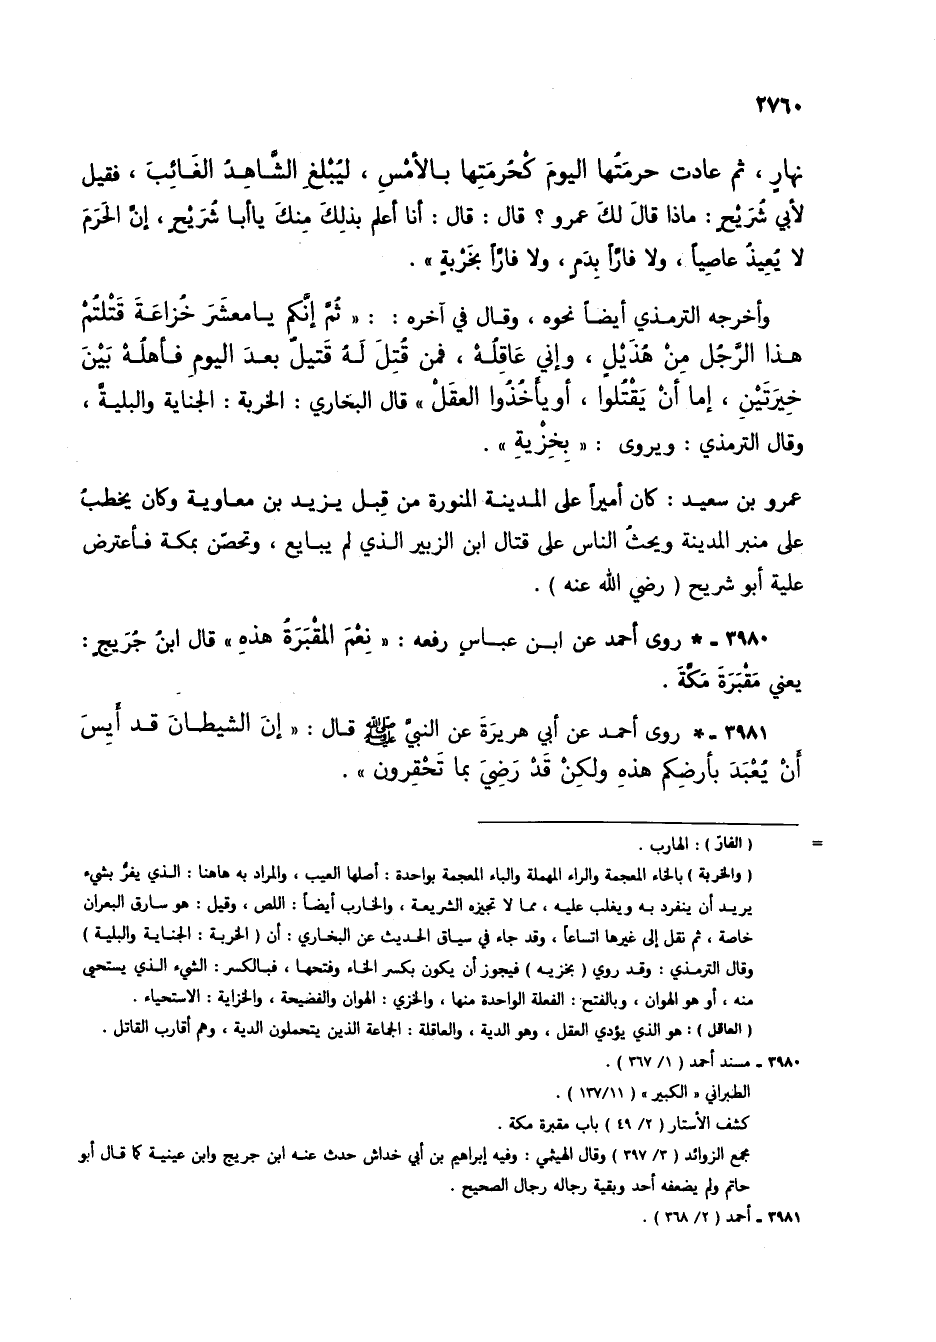 ٢٧٦٠
نهارٍ ، ثم عادت حرمَتُها اليومَ كُحرمَتِها بالأمْسِ ، ليُبْلغِ الشَّاهِدُ الغَائِبَ ، فقيل
لأبي شُرَيْحٍ : ماذا قالَ لكَ عمرو ؟ قال : قال : أنا أعلم بذلِكَ مِنكَ ياأبا شُرَيْحٍ ، إنَّ الحَرَمَ
لا يُعِيذُ عاصِياً ، ولا فارَّاً بِدَمٍ ، ولا فارَّاً بِخَرْبةٍ » .
وأخرجه الترمذي أيضاً نحوه ، وقال في آخره : : « ثُمَّ إنَّكم يامعشَرَ خُزاعَةَ قَتْلتُم
هذا الرَّجُل مِنْ هُذَيْلٍ ، وإني عَاقِلُهْ ، فمن قُتِلَ لَهُ قَتيلٌ بعدَ اليومِ فأهلُهْ بَيْنَ
خيرَتَيْنِ ، إما أنْ يَقْتُلوا ، أويأخُذُوا العقَلْ » قال البخاري : الخربة : الجناية والبليةُ ،
وقال الترمذي : ويروى : « بِخِزْيةٍ » .
عمرو بن سعيد : كان أميراً على المدينة المنورة من قِبل يزيد بن معاوية وكان يخطبُ
على منبر المدينة ويحثُ الناس على قتال ابن الزبير الذي لم يبايع ، وتحصّن بمكة فأعترض
علية أبو شريح ( رضي الله عنه ) .
٣٩٨٠ ـ * روى أحمد عن ابن عباسٍ رفعه : « نِعْمَ المَقْبَرَةُ هذهِ » قال ابنُ جُرَيجٍ :
يعني مَقْبَرَةَ مَكَّةَ .
٣٩٨١ ـ * روى أحمد عن أبي هريرَةَ عن النبيَّ ﷺ قال : « إنَ الشيطانَ قد أَيِسَ
أَنْ يُعْبَدَ بأرضِكم هذهِ ولكِنْ قَدْ رَضِيَ بما تَحْقِرون » .
= ( الفارّ ) : الهارب .
( والخربة ) بالخاء المعجمة والراء المهملة والباء المعجمة بواحدة : أصلها العيب ، والمراد به هاهنا : الذي يفرُّ بشيء
يريد أن ينفرد به ويغلب عليه ، مما لا تجيزه الشريعة ، والخارب أيضاً : اللص ، وقيل : هو سارق البعران
خاصة ، ثم نقل إلى غيرها اتساعاً ، وقد جاء في سياق الحديث عن البخاري : أن ( الخربة : الجناية والبلية )
وقال الترمذي : وقد روي ( بخزيه ) فيجوز أن يكون بكسر الخاء وفتحها ، فبالكسر : الشيء الذي يستحيى
منه ، أو هو الهوان ، وبالفتح : الفعلة الواحدة منها ، والخزي : الهوان والفضيحة ، والخزاية : الاستحياء .
( العاقل ) : هو الذي يؤدي العقل ، وهو الدية ، والعاقلة : الجماعة الذين يتحملون الدية ، وهم أقارب القاتل .
٣٩٨٠ ـ مسند أحمد ( ١/ ٣٦٧ ) .
الطبراني « الكبير » ( ١١/ ١٣٧ ) .
كشف الأستار ( ٢/ ٤٩ ) باب مقبرة مكة .
مجمع الزوائد ( ٣/ ٣٩٧ ) وقال الهيثمي : وفيه إبراهيم بن أبي خداش حدث عنه ابن جريج وابن عينية كما قال أبو
حاتم ولم يضعفه أحد وبقية رجاله رجال الصحيح .
٣٩٨١ ـ أحمد ( ٢/ ٣٦٨ ) .